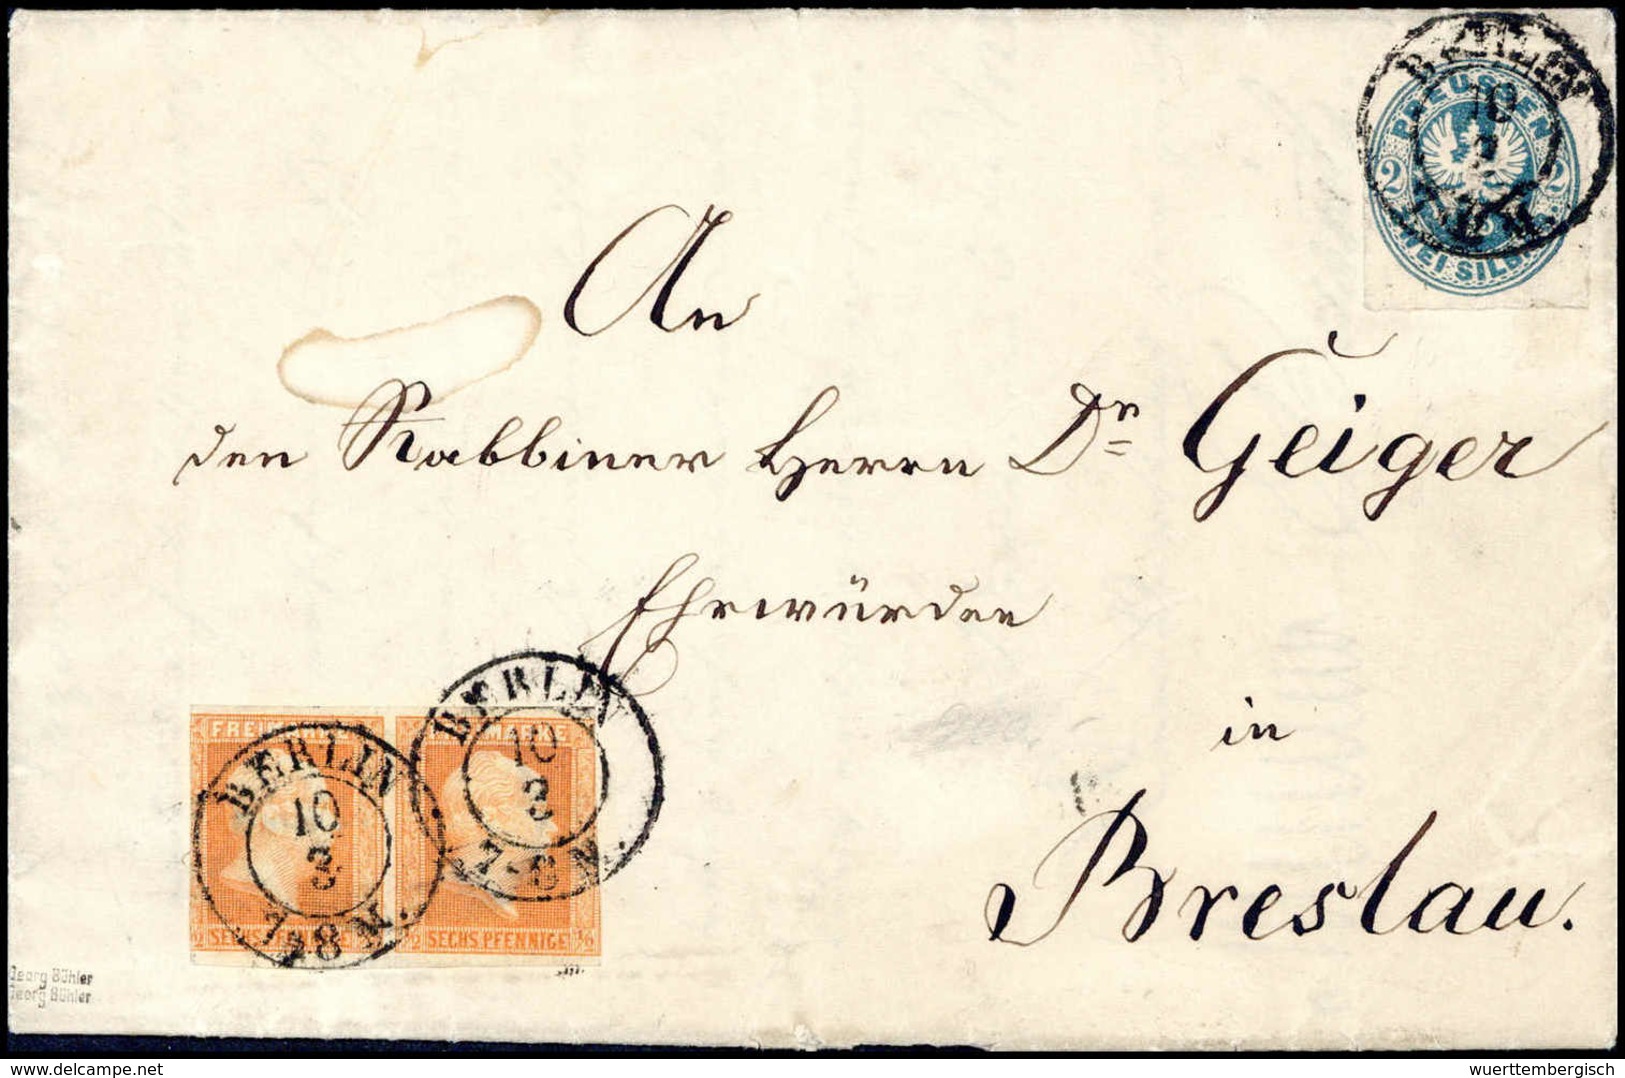 BERLIN
10
3
PREUSSEN
2 2
ZWEI SILBGR.
An
den Rabbiner Herrn Dr Geiger
Ehrwürden
in
Breslau.
FREIMARKE FREIMARKE
BERLIN BERLIN
10 10
3 3
7-8 N. 7-8 N.
SECHS PFENNIGE SECHS PFENNIGE
Georg Bühler
Georg Bühler
www.wuerttembergisch